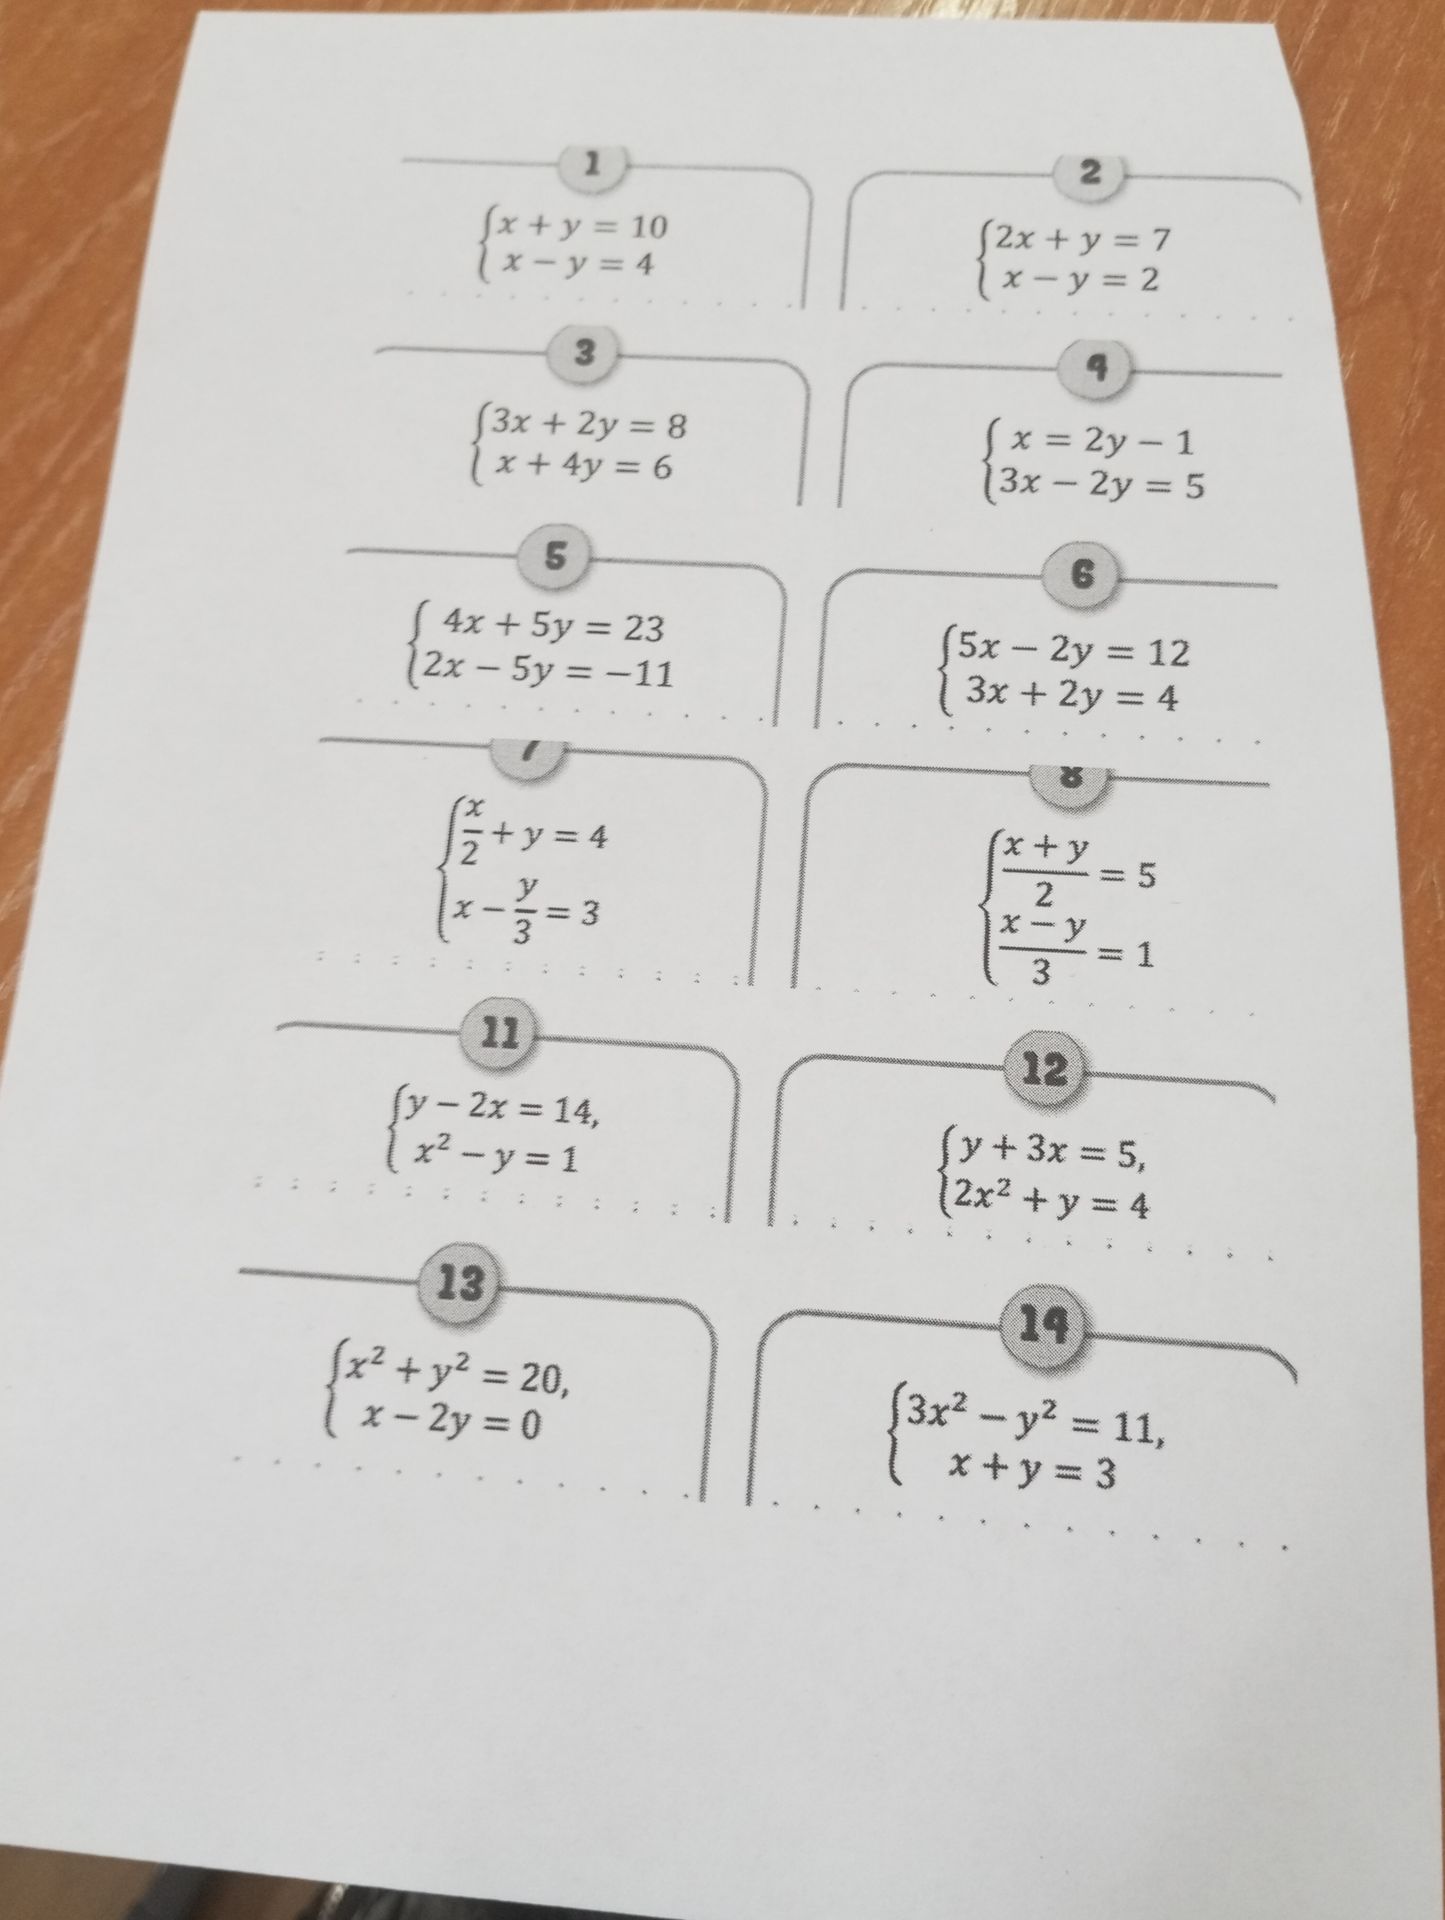 1
{x + y = 10
x − y = 4
2
{2x + y = 7
x − y = 2
3
{3x + 2y = 8
x + 4y = 6
4
{x = 2y − 1
3x − 2y = 5
5
{4x + 5y = 23
2x − 5y = −11
6
{5x − 2y = 12
3x + 2y = 4
7
{x/2 + y = 4
x − y/3 = 3
8
{(x + y)/2 = 5
(x − y)/3 = 1
11
{y − 2x = 14,
x² − y = 1
12
{y + 3x = 5,
2x² + y = 4
13
{x² + y² = 20,
x − 2y = 0
14
{3x² − y² = 11,
x + y = 3